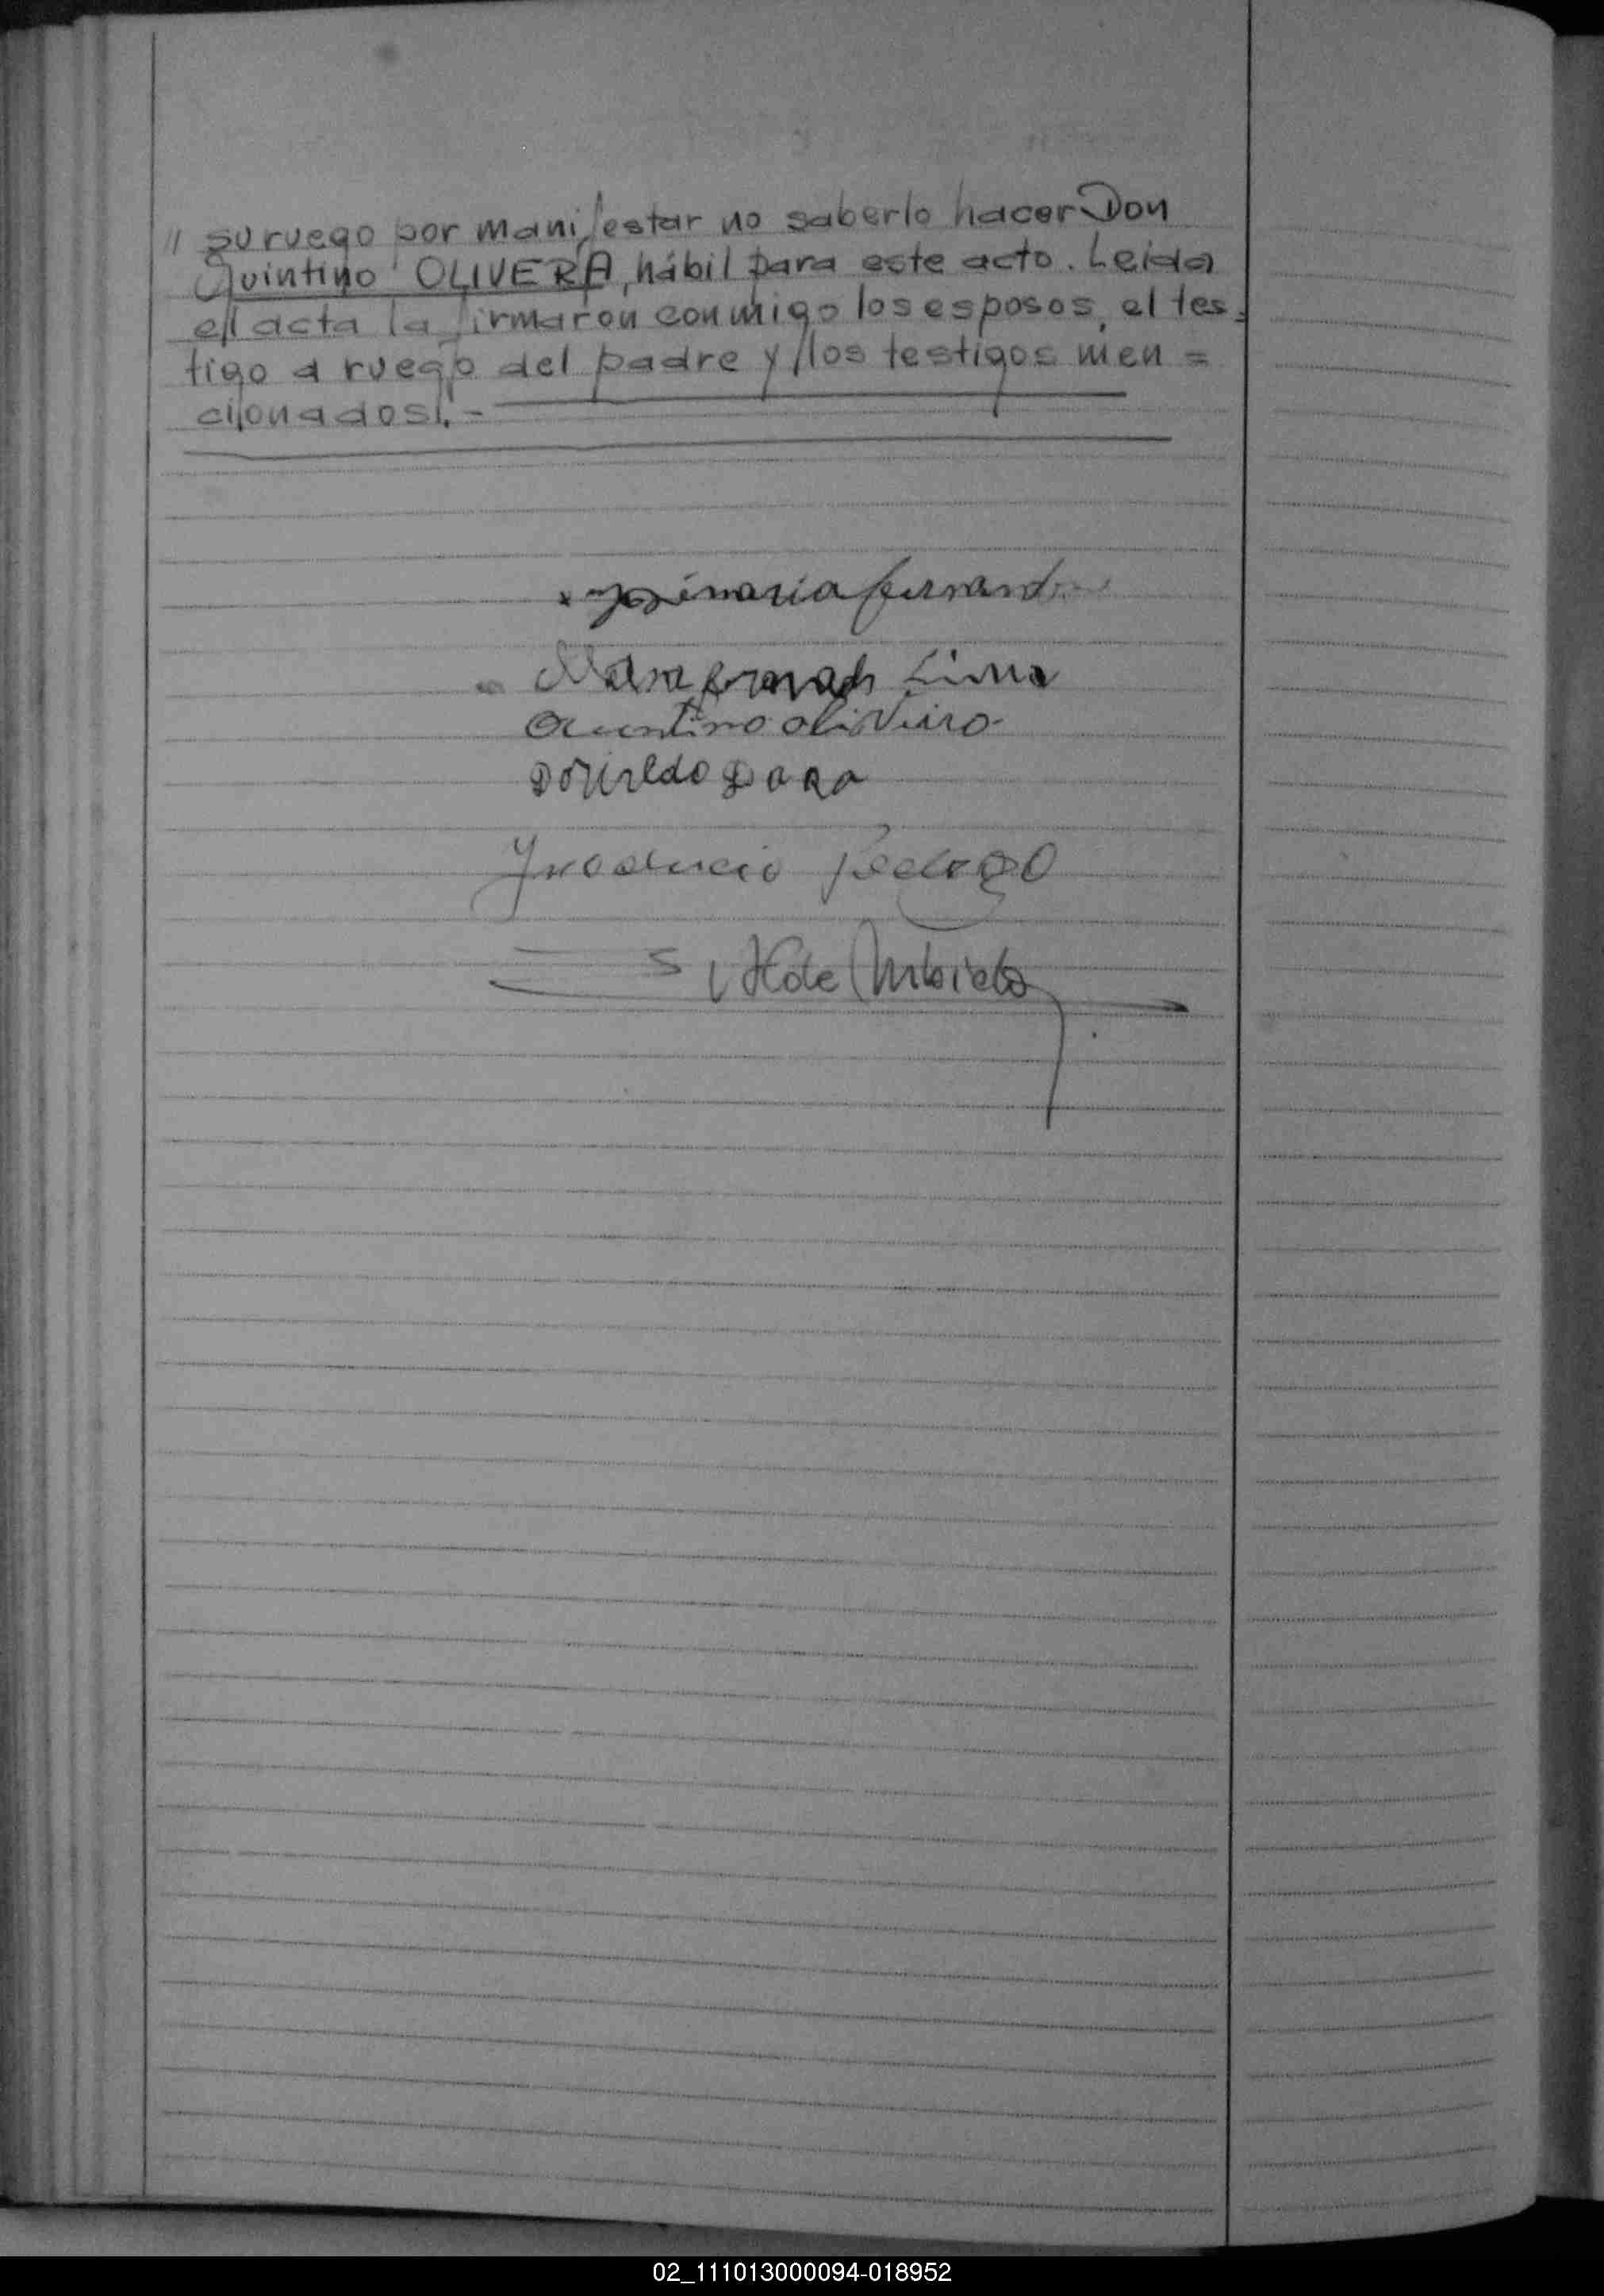 " su ruego por manifestar no saberlo hacer Don
Quintino OLIVERA, hábil para este acto. Leida
el acta la firmaron conmigo los esposos, el tes=
tigo a ruego del padre y los testigos men=
cionados.-
x José maria fernand
Lima
Quintino oliveiro
S. H de
02_111013000094-018952